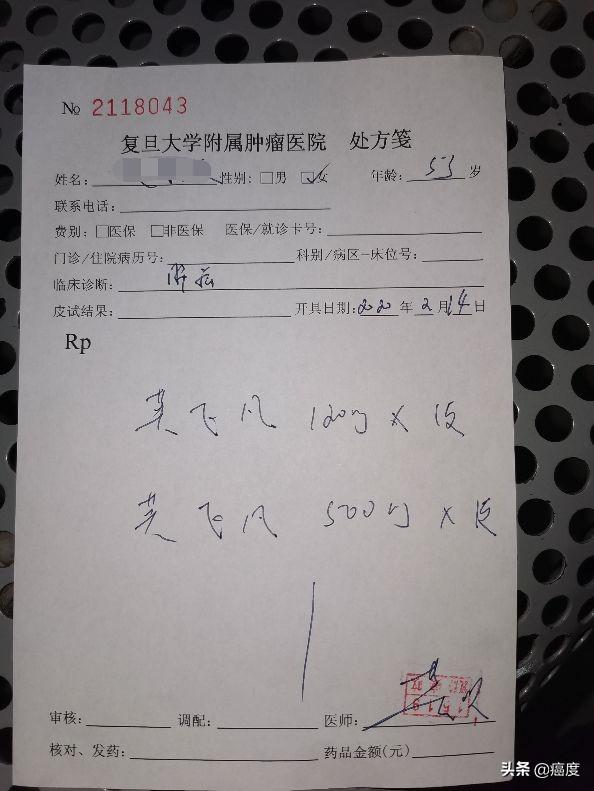 № 2118043
复旦大学附属肿瘤医院 处方笺
姓名: 性别: □男 ☑女 年龄: 53 岁
联系电话:
费别: □医保 □非医保 医保/就诊卡号:
门诊/住院病历号: 科别/病区-床位号:
临床诊断: 肺癌
皮试结果: 开具日期: 2020 年 2 月 14 日
Rp
英飞凡 120mg ×
英飞凡 500mg ×
审核: 调配: 医师:
核对、发药: 药品金额(元)
头条 @癌度